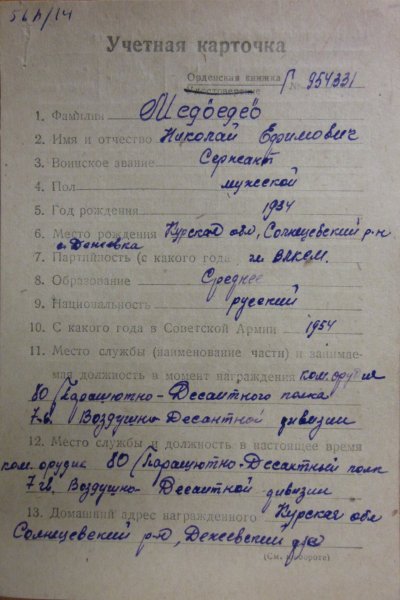 Учетная карточка
Орденская книжка
Удостоверение № Г 954331
1. Фамилия Медведев
2. Имя и отчество Николай Ефимович
3. Воинское звание Сержант
4. Пол мужской
5. Год рождения 1934
6. Место рождения Курская обл, Солнцевский р-н
7. Партийность (с какого года чл. ВЛКСМ.
8. Образование Среднее
9. Национальность русский
10. С какого года в Советской Армии 1954
11. Место службы (наименование части) и занимае-
мая должность в момент награждения ком. орудия
80 Парашютно-Десантного полка
7 гв. Воздушно Десантной дивизии
12. Место службы и должность в настоящее время
ком. орудия 80 Парашютно-Десантный полк
7 гв. Воздушно Десантной дивизии
13. Домашний адрес награжденного Курская обл
Солнцевский р-н,
(См. на обороте)